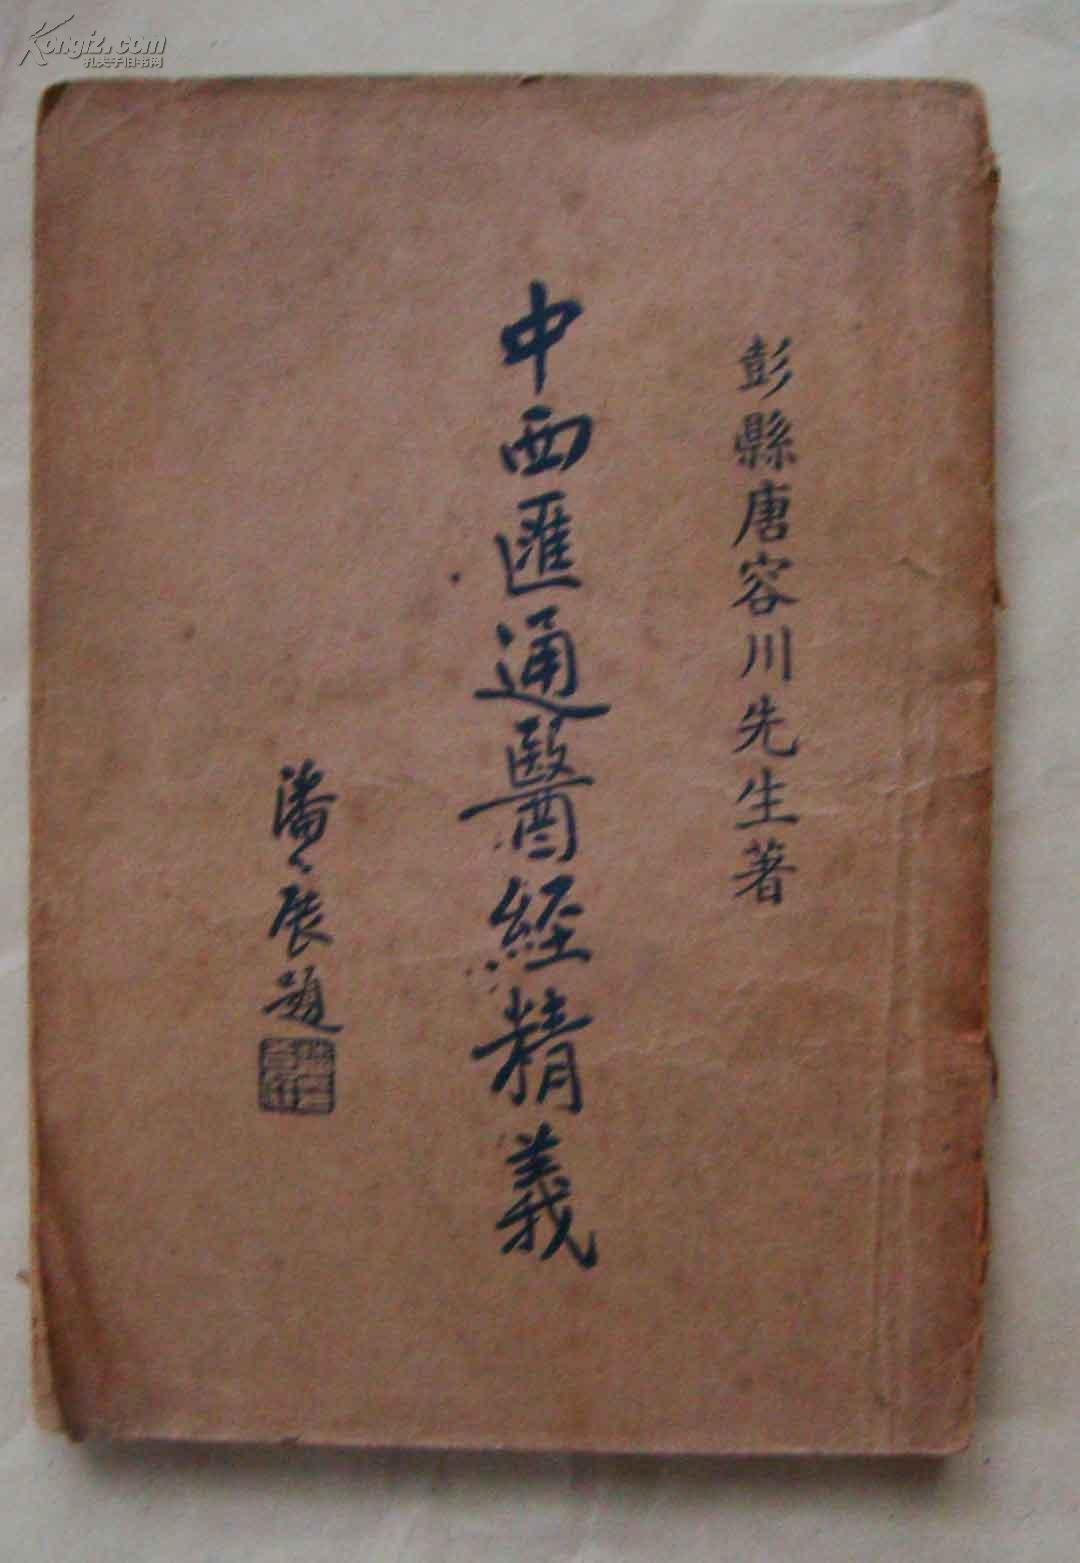 彭縣唐容川先生著
中西匯通醫經精義
潘公展題
Kongfz.com
孔夫子旧书网